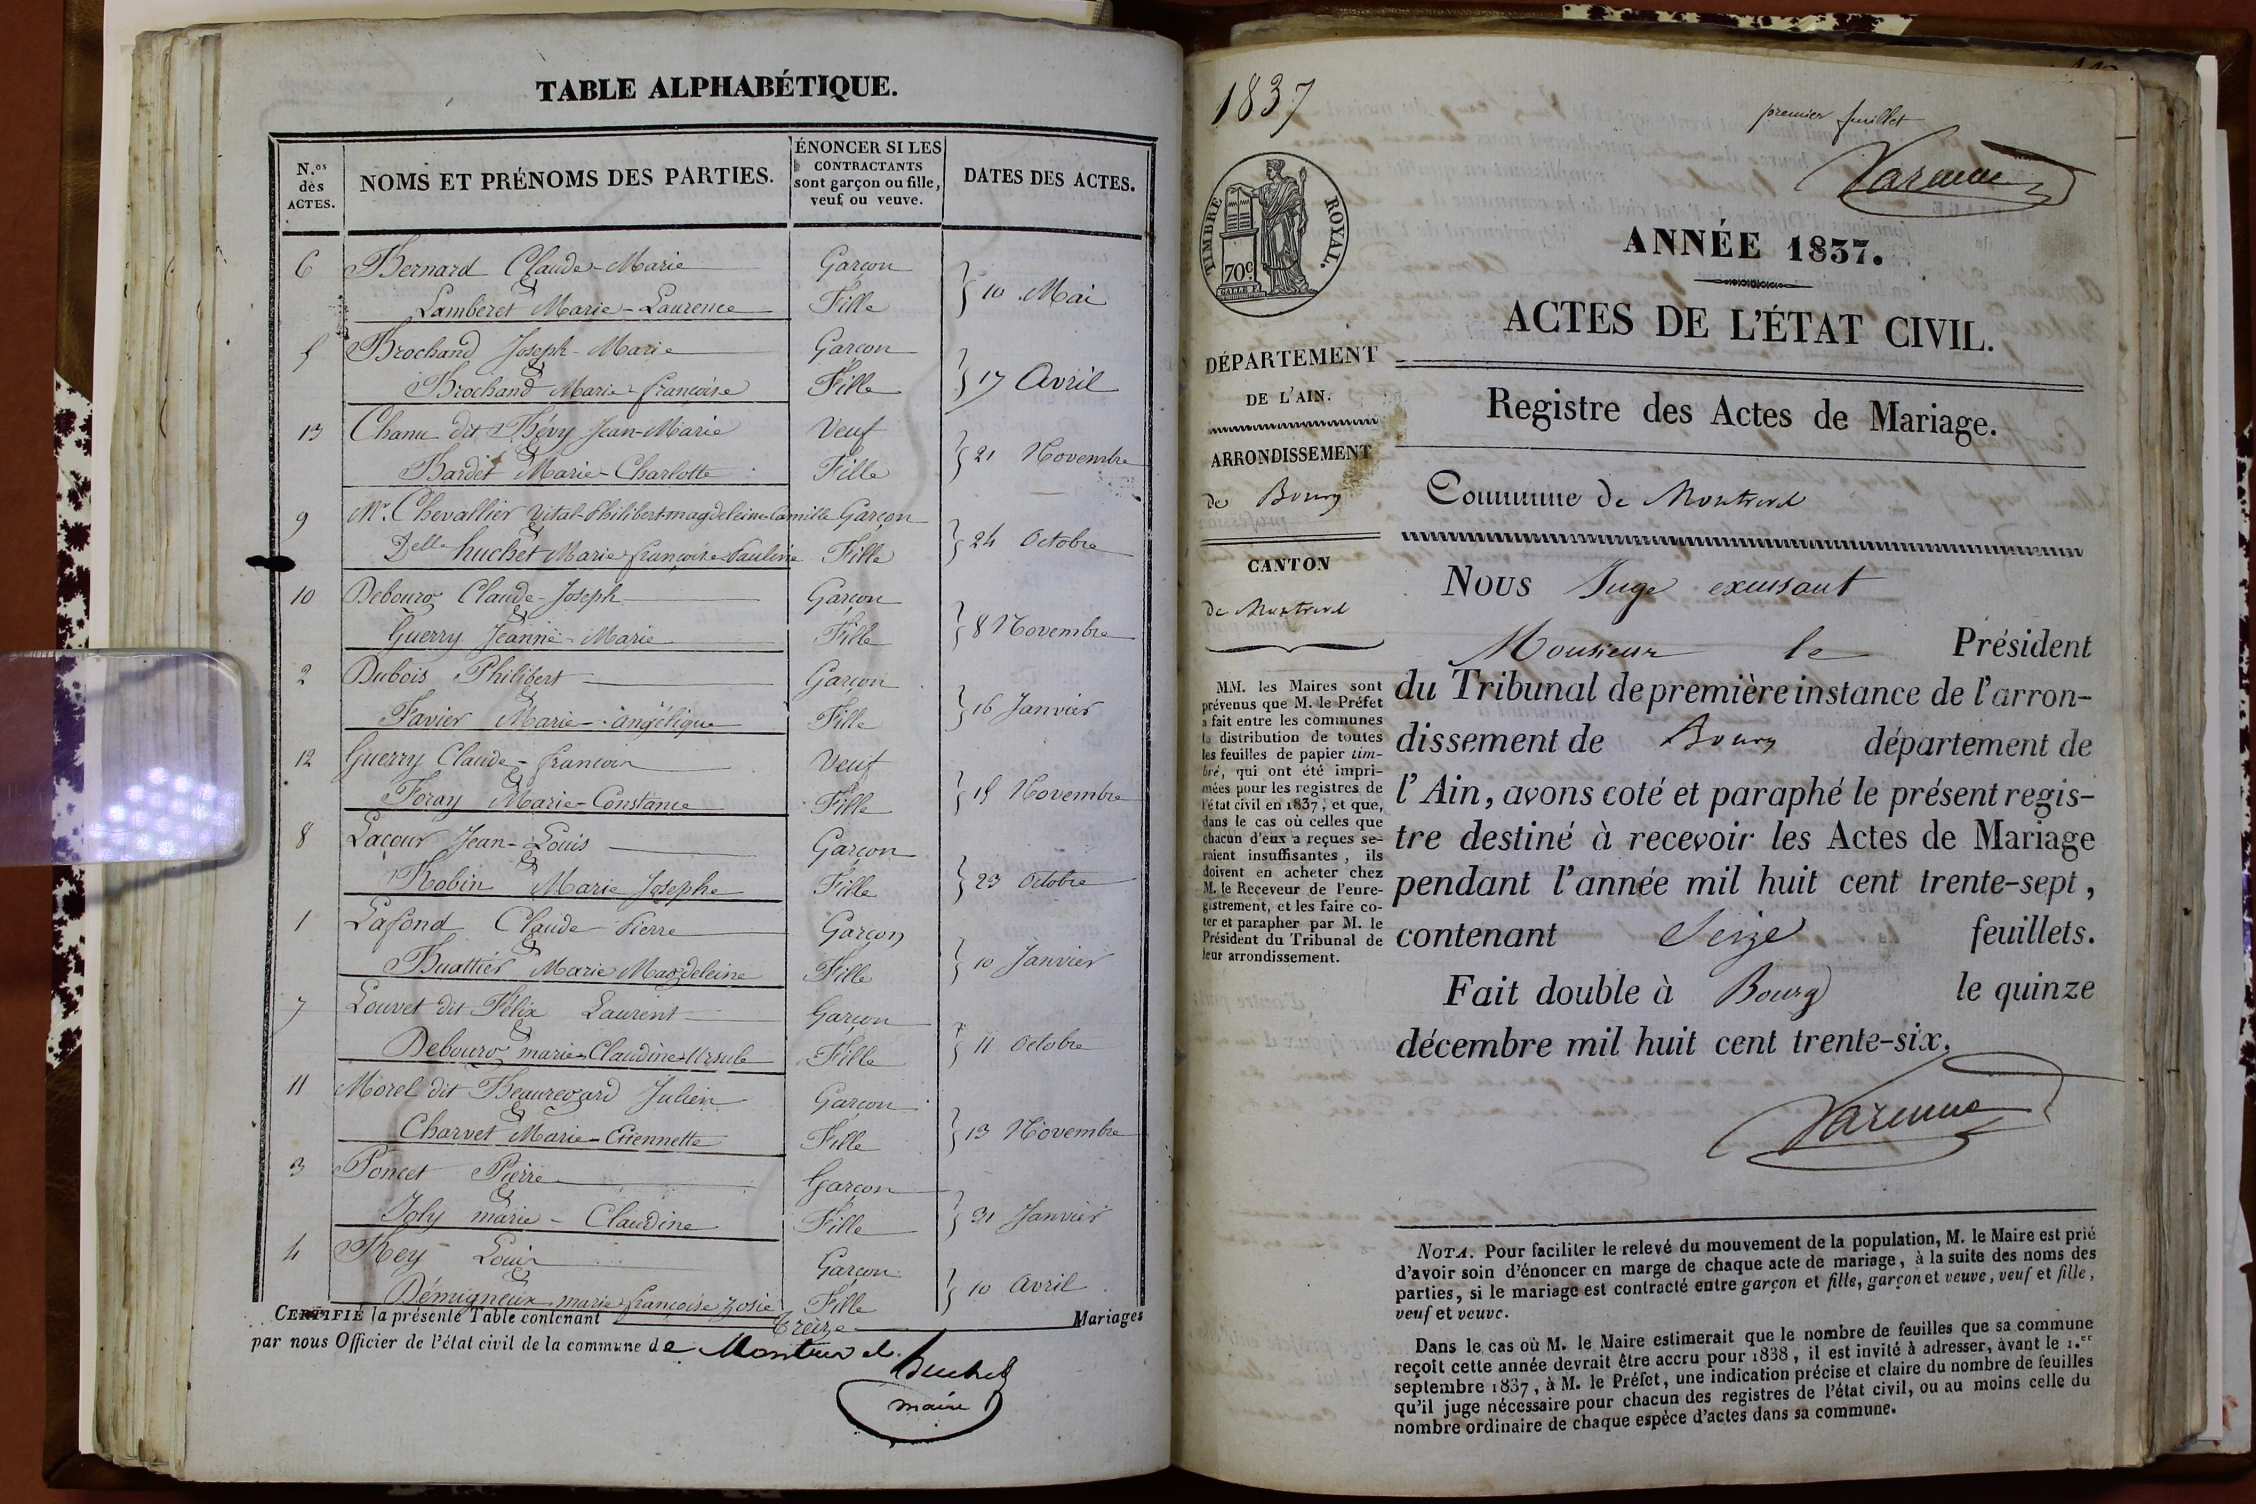 TABLE ALPHABÉTIQUE.
N.os des ACTES.
NOMS ET PRÉNOMS DES PARTIES.
ÉNONCER SI LES CONTRACTANTS sont garçon ou fille, veuf ou veuve.
DATES DES ACTES.
6 Bernard Claude-Marie Garçon
& Lamberet Marie-Laurence Fille } 10 Mai
5 Brochand Joseph-Marie Garcon
& Brochand Marie-françoise Fille } 17 Avril
13 Chanu dit Bévy Jean-Marie Veuf
& Bardet Marie-Charlotte Fille } 21 Novembre
9 Mr. Chevallier Vital-Philibert-magdeleine-Camille Garçon
& Delle huchet Marie-françoise-Pauline Fille } 24 Octobre
10 Debourg Claude-Joseph Garçon
& Guerry Jeanne-Marie Fille } 8 Novembre
2 Dubois Philibert Garçon
& Favier Marie-angélique Fille } 16 Janvier
12 Guerry Claude-françois Veuf
& Foray Marie-Constance Fille } 15 Novembre
8 Lacour Jean-Louis Garçon
& Robin Marie Josephe Fille } 23 Octobre
1 Lafond Claude-Pierre Garçon
& Buattier Marie Magdeleine Fille } 10 Janvier
7 Louvet dit Félix Laurent Garçon
& Debourg marie-Claudine-Ursule Fille } 11 Octobre
11 Morel dit Beauregard Julien Garçon
& Charvet Marie-Etiennette Fille } 13 Novembre
3 Poncet Pierre Garçon
& Joly marie-Claudine Fille } 31 Janvier
4 Rey Louis Garçon
& Démigneux marie françoise Zosie Fille } 10 avril
CERTIFIÉ la présente Table contenant Treize Mariages
par nous Officier de l'état civil de la commune de Montrevel.
huchet
maire
1837
premier feuillet
Varenne
TIMBRE ROYAL.
70c.
ANNÉE 1837.
ACTES DE L'ÉTAT CIVIL.
Registre des Actes de Mariage.
DÉPARTEMENT
DE L'AIN.
ARRONDISSEMENT
de Bourg
CANTON
de Montrevel
MM. les Maires sont
prévenus que M. le Préfet
a fait entre les communes
la distribution de toutes
les feuilles de papier tim-
bré, qui ont été impri-
mées pour les registres de
l'état civil en 1837, et que,
dans le cas où celles que
chacun d'eux a reçues se-
raient insuffisantes, ils
doivent en acheter chez
M. le Receveur de l'enre-
gistrement, et les faire co-
ter et parapher par M. le
Président du Tribunal de
leur arrondissement.
Commune de Montrevel
NOUS Juge exussant
Monsieur le Président
du Tribunal de première instance de l'arron-
dissement de Bourg département de
l'Ain, avons coté et paraphé le présent regis-
tre destiné à recevoir les Actes de Mariage
pendant l'année mil huit cent trente-sept,
contenant Seize feuillets.
Fait double à Bourg le quinze
décembre mil huit cent trente-six.
Varenne
NOTA. Pour faciliter le relevé du mouvement de la population, M. le Maire est prié
d'avoir soin d'énoncer en marge de chaque acte de mariage, à la suite des noms des
parties, si le mariage est contracté entre garçon et fille, garçon et veuve, veuf et fille,
veuf et veuve.
Dans le cas où M. le Maire estimerait que le nombre de feuilles que sa commune
reçoit cette année devrait être accru pour 1838, il est invité à adresser, avant le 1.er
septembre 1837, à M. le Préfet, une indication précise et claire du nombre de feuilles
qu'il juge nécessaire pour chacun des registres de l'état civil, ou au moins celle du
nombre ordinaire de chaque espèce d'actes dans sa commune.